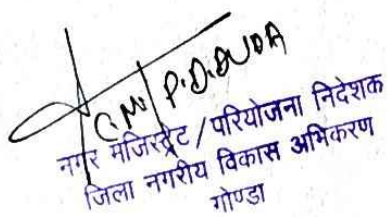 C.M/P.D.DUDA
नगर मजिस्ट्रेट/परियोजना निदेशक
जिला नगरीय विकास अभिकरण
गोण्डा